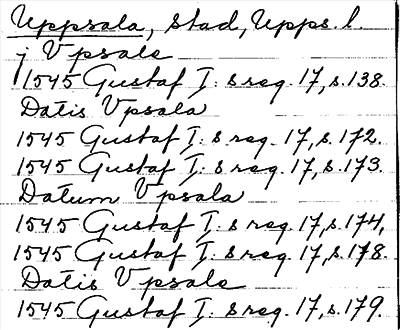 Uppsala, stad, Upps. l.
j Vpsale
1545 Gustaf I: s reg. 17, s. 138.
Datis Vpsala
1545 Gustaf I: s reg. 17, s. 172.
1545 Gustaf I: s reg. 17, s. 173.
Datum Vpsala
1545 Gustaf I: s reg. 17, s. 174,
1545 Gustaf I: s reg. 17, s. 178.
Datis Vpsale
1545 Gustaf I: s reg. 17, s. 179.